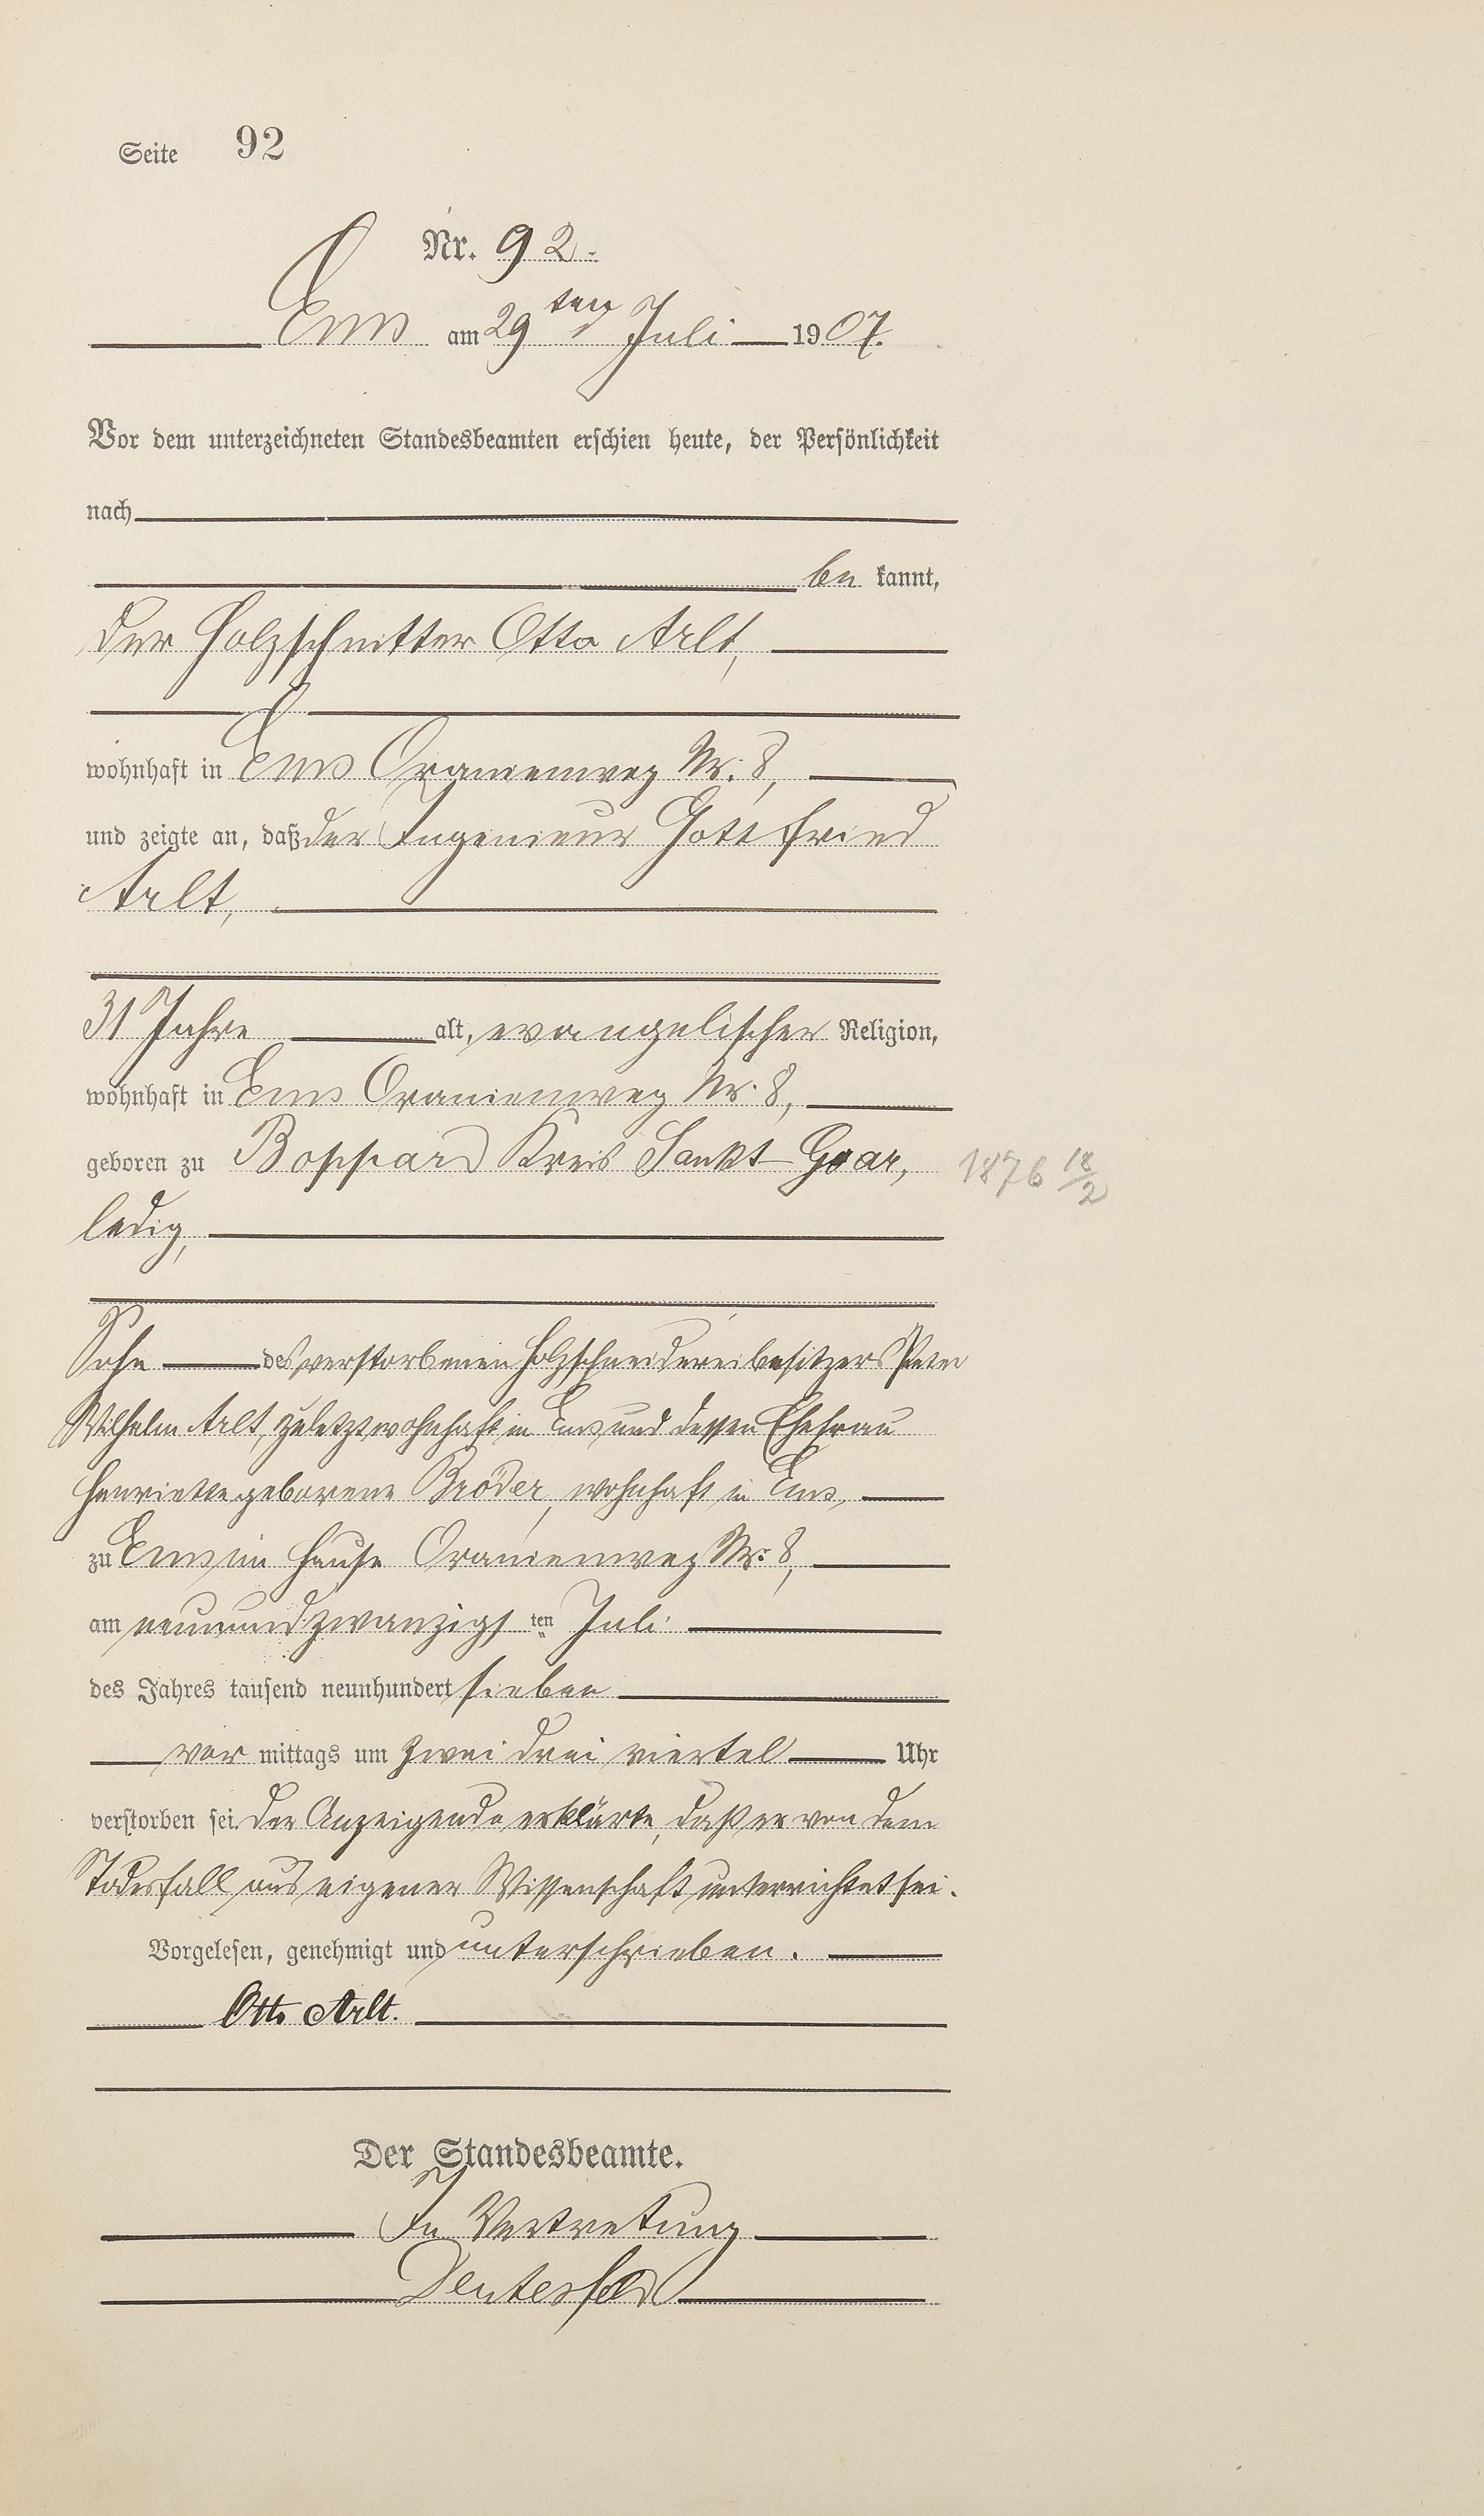 Seite 92
Nr. 92.
Ems am 29ten Juli 1907.
Vor dem unterzeichneten Standesbeamten erschien heute, der Persönlichkeit
nach
be kannt,
der Holzschnitter Otto Arlt,
wohnhaft in Ems Oranienweg Nr. 8,
und zeigte an, daß der Ingenieur Gottfried
Arlt,
31 Jahre alt, evangelischer Religion,
wohnhaft in Ems Oranienweg Nr. 8,
geboren zu Boppard Kreis Sankt-Goar, 1876 18/2
ledig,
Sohn des verstorbenen Holzschneidereibesitzers Peter
Wilhelm Arlt, zuletzt wohnhaft in Ems und dessen Ehefrau
Henriette geborene Bröder, wohnhaft in Ems,
zu Ems im Hause Oranienweg Nr. 8,
am neunundzwanzigsten Juli
des Jahres tausend neunhundert sieben
vor mittags um zwei drei viertel Uhr
verstorben sei. Der Anzeigende erklärte, daß er von dem
Todesfall aus eigener Wissenschaft unterrichtet sei.
Vorgelesen, genehmigt und unterschrieben.
Otto Arlt.
Der Standesbeamte.
In Vertretung